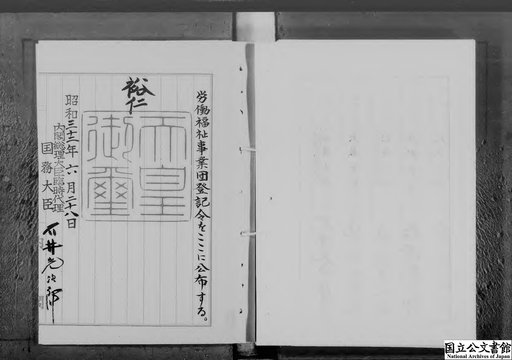 労働福祉事業団登記令をここに公布する。
裕仁
天皇御璽
昭和三十二年六月二十八日
内閣総理大臣臨時代理
国務大臣 石井光次郎
国立公文書館
National Archives of Japan